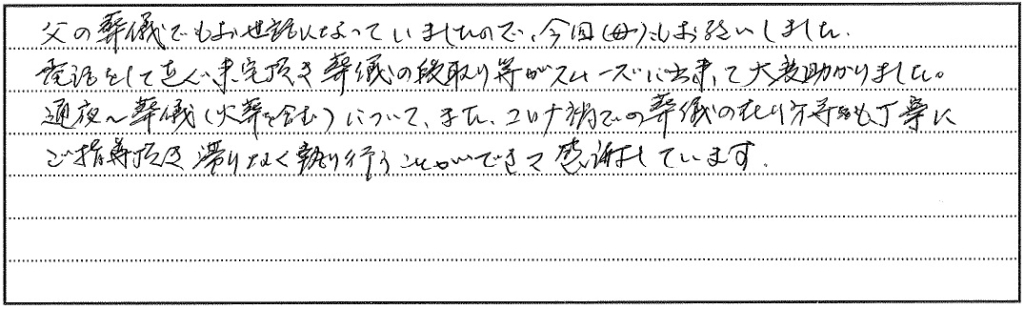 父の葬儀でもお世話になっていましたので、今回(母)もお願いしました。
電話をして直ぐ来宅頂き葬儀の段取り等がスムーズに出来て大変助かりました。
通夜〜葬儀(火葬を含む)について、また、コロナ禍での葬儀の在り方等も丁寧に
ご指導頂き滞りなく執り行うことができて感謝しています。